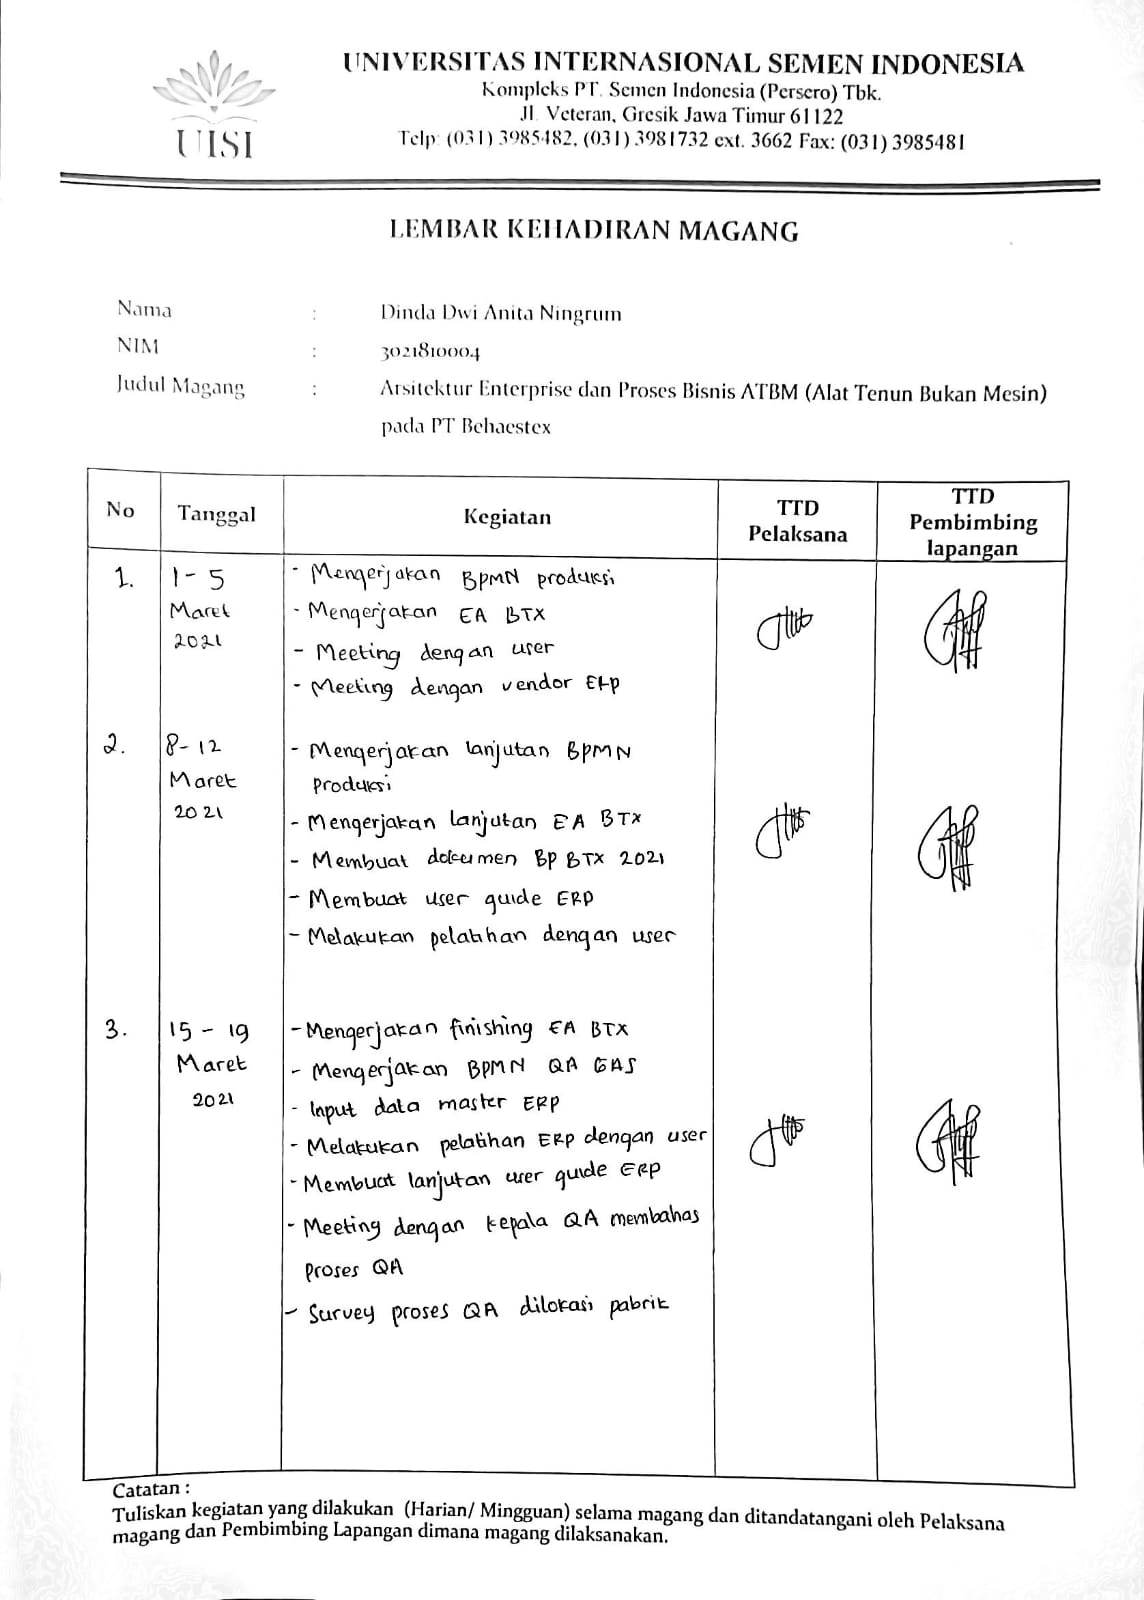 UNIVERSITAS INTERNASIONAL SEMEN INDONESIA
Kompleks PT. Semen Indonesia (Persero) Tbk.
Jl. Veteran, Gresik Jawa Timur 61122
Telp: (031) 3985482, (031) 3981732 ext. 3662 Fax: (031) 3985481
UISI
LEMBAR KEHADIRAN MAGANG
Nama : Dinda Dwi Anita Ningrum
NIM : 3021810004
Judul Magang : Arsitektur Enterprise dan Proses Bisnis ATBM (Alat Tenun Bukan Mesin)
pada PT Behaestex
No Tanggal Kegiatan TTD Pelaksana TTD Pembimbing lapangan
1. 1 - 5 Maret 2021
- Mengerjakan BPMN produksi
- Mengerjakan EA BTX
- Meeting dengan user
- Meeting dengan vendor ERP
2. 8 - 12 Maret 2021
- Mengerjakan lanjutan BPMN
produksi
- Mengerjakan lanjutan EA BTX
- Membuat dokumen BP BTX 2021
- Membuat user guide ERP
- Melakukan pelatihan dengan user
3. 15 - 19 Maret 2021
- Mengerjakan finishing EA BTX
- Mengerjakan BPMN QA GAS
- Input data master ERP
- Melakukan pelatihan ERP dengan user
- Membuat lanjutan user guide ERP
- Meeting dengan kepala QA membahas
proses QA
- Survey proses QA dilokasi pabrik
Catatan :
Tuliskan kegiatan yang dilakukan (Harian/ Mingguan) selama magang dan ditandatangani oleh Pelaksana
magang dan Pembimbing Lapangan dimana magang dilaksanakan.